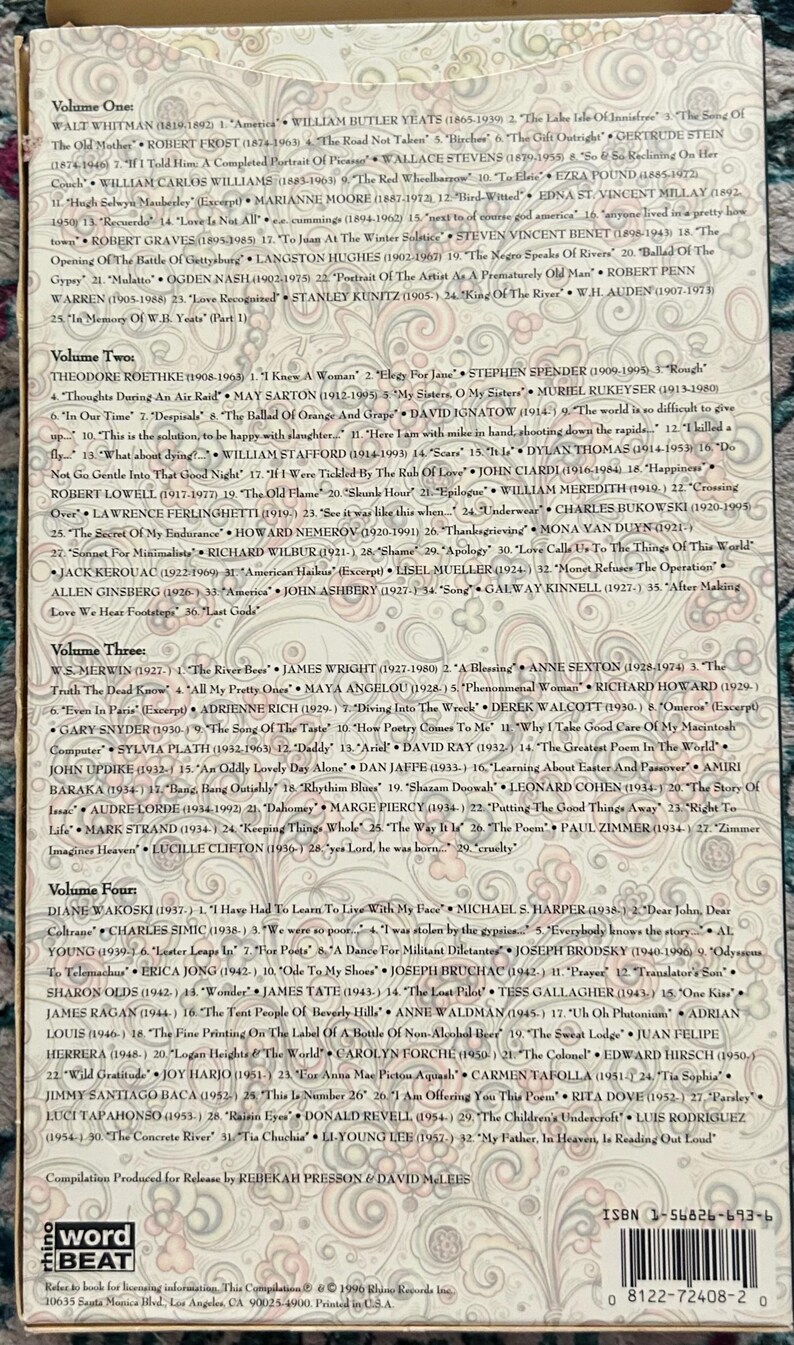 Volume One:
WALT WHITMAN (1819-1892) 1. "America" • WILLIAM BUTLER YEATS (1865-1939) 2. "The Lake Isle Of Innisfree" 3. "The Song Of
The Old Mother" • ROBERT FROST (1874-1963) 4. "The Road Not Taken" 5. "Birches" 6. "The Gift Outright" • GERTRUDE STEIN
(1874-1946) 7. "If I Told Him: A Completed Portrait Of Picasso" • WALLACE STEVENS (1879-1955) 8. "So & So Reclining On Her
Couch" • WILLIAM CARLOS WILLIAMS (1883-1963) 9. "The Red Wheelbarrow" 10. "To Elsie" • EZRA POUND (1885-1972)
11. "Hugh Selwyn Mauberley" (Excerpt) • MARIANNE MOORE (1887-1972) 12. "Bird-Witted" • EDNA ST. VINCENT MILLAY (1892-
1950) 13. "Recuerdo" 14. "Love Is Not All" • e.e. cummings (1894-1962) 15. "next to of course god america" 16. "anyone lived in a pretty how
town" • ROBERT GRAVES (1895-1985) 17. "To Juan At The Winter Solstice" • STEVEN VINCENT BENET (1898-1943) 18. "The
Opening Of The Battle Of Gettysburg" • LANGSTON HUGHES (1902-1967) 19. "The Negro Speaks Of Rivers" 20. "Ballad Of The
Gypsy" 21. "Mulatto" • OGDEN NASH (1902-1975) 22. "Portrait Of The Artist As A Prematurely Old Man" • ROBERT PENN
WARREN (1905-1988) 23. "Love Recognized" • STANLEY KUNITZ (1905- ) 24. "King Of The River" • W.H. AUDEN (1907-1973)
25. "In Memory Of W.B. Yeats" (Part 1)
Volume Two:
THEODORE ROETHKE (1908-1963) 1. "I Knew A Woman" 2. "Elegy For Jane" • STEPHEN SPENDER (1909-1995) 3. "Rough"
4. "Thoughts During An Air Raid" • MAY SARTON (1912-1995) 5. "My Sisters, O My Sisters" • MURIEL RUKEYSER (1913-1980)
6. "In Our Time" 7. "Despisals" 8. "The Ballad Of Orange And Grape" • DAVID IGNATOW (1914- ) 9. "The world is so difficult to give
up..." 10. "This is the solution, to be happy with slaughter..." 11. "Here I am with mike in hand, shooting down the rapids..." 12. "I killed a
fly..." 13. "What about dying?..." • WILLIAM STAFFORD (1914-1993) 14. "Scars" 15. "It Is" • DYLAN THOMAS (1914-1953) 16. "Do
Not Go Gentle Into That Good Night" 17. "If I Were Tickled By The Rub Of Love" • JOHN CIARDI (1916-1984) 18. "Happiness" •
ROBERT LOWELL (1917-1977) 19. "The Old Flame" 20. "Skunk Hour" 21. "Epilogue" • WILLIAM MEREDITH (1919- ) 22. "Crossing
Over" • LAWRENCE FERLINGHETTI (1919- ) 23. "See it was like this when..." 24. "Underwear" • CHARLES BUKOWSKI (1920-1995)
25. "The Secret Of My Endurance" • HOWARD NEMEROV (1920-1991) 26. "Thanksgrieving" • MONA VAN DUYN (1921- )
27. "Sonnet For Minimalists" • RICHARD WILBUR (1921- ) 28. "Shame" 29. "Apology" 30. "Love Calls Us To The Things Of This World"
• JACK KEROUAC (1922-1969) 31. "American Haikus" (Excerpt) • LISEL MUELLER (1924- ) 32. "Monet Refuses The Operation" •
ALLEN GINSBERG (1926- ) 33. "America" • JOHN ASHBERY (1927- ) 34. "Song" • GALWAY KINNELL (1927- ) 35. "After Making
Love We Hear Footsteps" 36. "Last Gods"
Volume Three:
W.S. MERWIN (1927- ) 1. "The River Bees" • JAMES WRIGHT (1927-1980) 2. "A Blessing" • ANNE SEXTON (1928-1974) 3. "The
Truth The Dead Know" 4. "All My Pretty Ones" • MAYA ANGELOU (1928- ) 5. "Phenonmenal Woman" • RICHARD HOWARD (1929- )
6. "Even In Paris" (Excerpt) • ADRIENNE RICH (1929- ) 7. "Diving Into The Wreck" • DEREK WALCOTT (1930- ) 8. "Omeros" (Excerpt)
• GARY SNYDER (1930- ) 9. "The Song Of The Taste" 10. "How Poetry Comes To Me" 11. "Why I Take Good Care Of My Macintosh
Computer" • SYLVIA PLATH (1932-1963) 12. "Daddy" 13. "Ariel" • DAVID RAY (1932- ) 14. "The Greatest Poem In The World" •
JOHN UPDIKE (1932- ) 15. "An Oddly Lovely Day Alone" • DAN JAFFE (1933- ) 16. "Learning About Easter And Passover" • AMIRI
BARAKA (1934- ) 17. "Bang, Bang Outishly" 18. "Rhythim Blues" 19. "Shazam Doowah" • LEONARD COHEN (1934- ) 20. "The Story Of
Issac" • AUDRE LORDE (1934-1992) 21. "Dahomey" • MARGE PIERCY (1934- ) 22. "Putting The Good Things Away" 23. "Right To
Life" • MARK STRAND (1934- ) 24. "Keeping Things Whole" 25. "The Way It Is" 26. "The Poem" • PAUL ZIMMER (1934- ) 27. "Zimmer
Imagines Heaven" • LUCILLE CLIFTON (1936- ) 28. "yes Lord, he was born..." 29. "cruelty"
Volume Four:
DIANE WAKOSKI (1937- ) 1. "I Have Had To Learn To Live With My Face" • MICHAEL S. HARPER (1938- ) 2. "Dear John, Dear
Coltrane" • CHARLES SIMIC (1938- ) 3. "We were so poor..." 4. "I was stolen by the gypsies..." 5. "Everybody knows the story..." • AL
YOUNG (1939- ) 6. "Lester Leaps In" 7. "For Poets" 8. "A Dance For Militant Diletantes" • JOSEPH BRODSKY (1940-1996) 9. "Odysseus
To Telemachus" • ERICA JONG (1942- ) 10. "Ode To My Shoes" • JOSEPH BRUCHAC (1942- ) 11. "Prayer" 12. "Translator's Son" •
SHARON OLDS (1942- ) 13. "Wonder" • JAMES TATE (1943- ) 14. "The Lost Pilot" • TESS GALLAGHER (1943- ) 15. "One Kiss" •
JAMES RAGAN (1944- ) 16. "The Tent People Of Beverly Hills" • ANNE WALDMAN (1945- ) 17. "Uh Oh Plutonium" • ADRIAN
LOUIS (1946- ) 18. "The Fine Printing On The Label Of A Bottle Of Non-Alcohol Beer" 19. "The Sweat Lodge" • JUAN FELIPE
HERRERA (1948- ) 20. "Logan Heights & The World" • CAROLYN FORCHE (1950- ) 21. "The Colonel" • EDWARD HIRSCH (1950- )
22. "Wild Gratitude" • JOY HARJO (1951- ) 23. "For Anna Mae Pictou Aquash" • CARMEN TAFOLLA (1951- ) 24. "Tia Sophia" •
JIMMY SANTIAGO BACA (1952- ) 25. "This Is Number 26" 26. "I Am Offering You This Poem" • RITA DOVE (1952- ) 27. "Parsley" •
LUCI TAPAHONSO (1953- ) 28. "Raisin Eyes" • DONALD REVELL (1954- ) 29. "The Children's Undercroft" • LUIS RODRIGUEZ
(1954- ) 30. "The Concrete River" 31. "Tia Chuchia" • LI-YOUNG LEE (1957- ) 32. "My Father, In Heaven, Is Reading Out Loud"
Compilation Produced for Release by REBEKAH PRESSON & DAVID McLEES
ISBN 1-56826-693-6
rhino
word
BEAT
Refer to book for licensing information. This Compilation ℗ & © 1996 Rhino Records Inc.,
10635 Santa Monica Blvd., Los Angeles, CA 90025-4900. Printed in U.S.A.
0 8122-72408-2 0